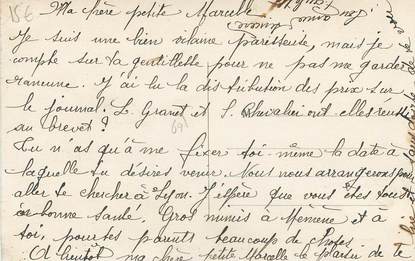 15€
Ma chère petite Marcelle
Je suis une bien vilaine paresseuse, mais je
compte sur ta gentillesse pour ne pas me garder
rancune. J'ai lu la distribution des prix sur
le journal. L. Granet et S. Chevalier ont elles réussi
au brevet ?
69
Tu n'as qu'à me fixer toi-même la date à
laquelle tu désires venir. Nous nous arrangerons pour
aller te chercher à Dijon. J'espère que vous êtes tous
en bonne santé. Gros mimis à Mémène et à
toi, pour tes parents beaucoup de choses
A bientôt ma chère petite Marcelle le de te